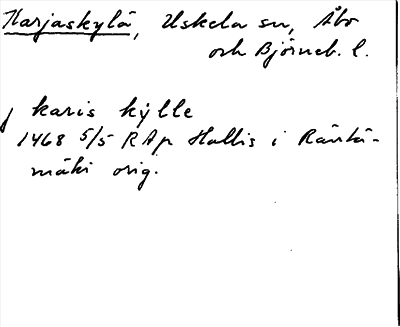 Karjaskylä, Uskela sn, Åbo
och Björneb. l.
j karis kylle
1468 5/5 RAp Hallis i Räntä-
mäki orig.